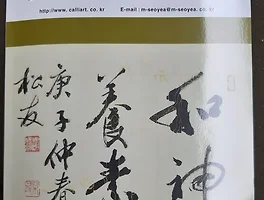 http://www.calliart.co.kr E-mail : m-seoyea@m-seoyea.co.kr
和神
養素
庚子仲春
松友